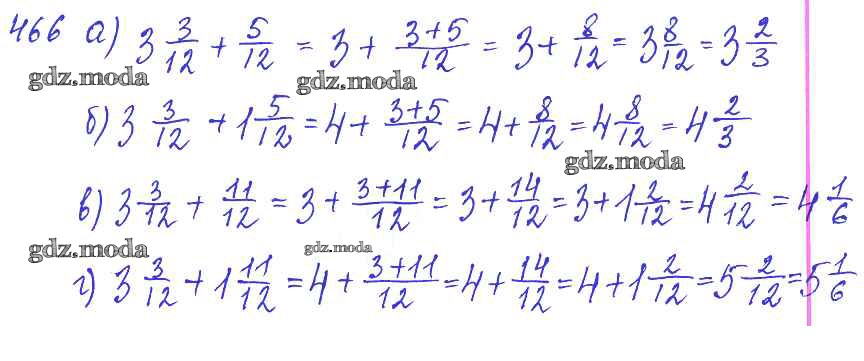 466 а) 3 3/12 + 5/12 = 3 + (3+5)/12 = 3 + 8/12 = 3 8/12 = 3 2/3
gdz.moda gdz.moda
б) 3 3/12 + 1 5/12 = 4 + (3+5)/12 = 4 + 8/12 = 4 8/12 = 4 2/3
gdz.moda
в) 3 3/12 + 11/12 = 3 + (3+11)/12 = 3 + 14/12 = 3 + 1 2/12 = 4 2/12 = 4 1/6
gdz.moda gdz.moda
г) 3 3/12 + 1 11/12 = 4 + (3+11)/12 = 4 + 14/12 = 4 + 1 2/12 = 5 2/12 = 5 1/6